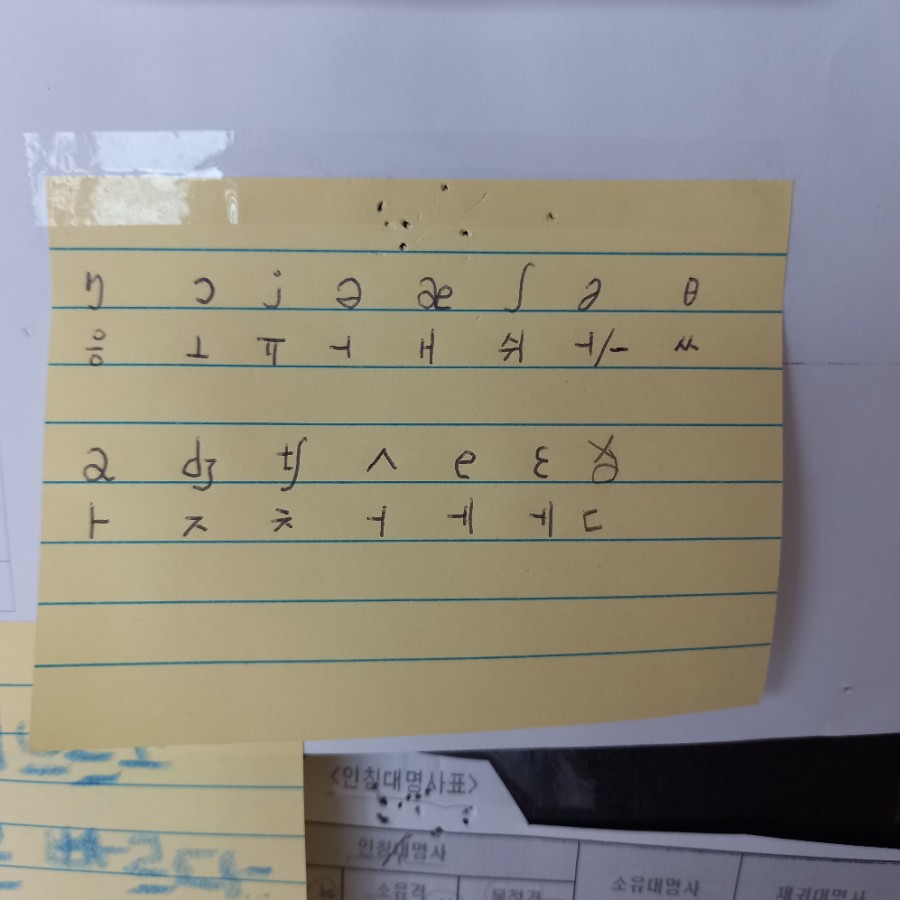 ŋ ɔ j ə æ ʃ ə θ
응 ㅗ ㅠ ㅓ ㅐ 쉬 ㅓ/ㅡ ㅆ
a dʒ tʃ ʌ e ɛ ð
ㅏ ㅈ ㅊ ㅓ ㅔ ㅔ ㄷ
<인칭대명사표>
인칭대명사
소유격 목적격 소유대명사 재귀대명사